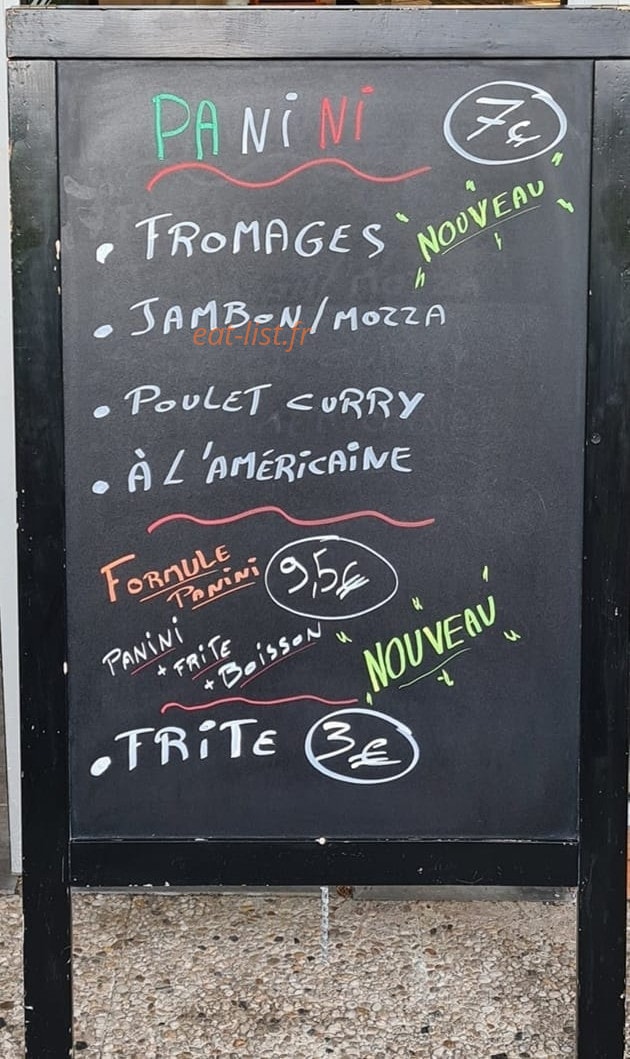 PANiNi 7€
• FROMAGES NOUVEAU
• JAMBON/MOZZA
eat-list.fr
• POULET CURRY
• À L'AMÉRICAiNE
FORMULE PANiNi 9,5€
PANiNi + FRiTE + BOiSSON NOUVEAU
• FRiTE 3€